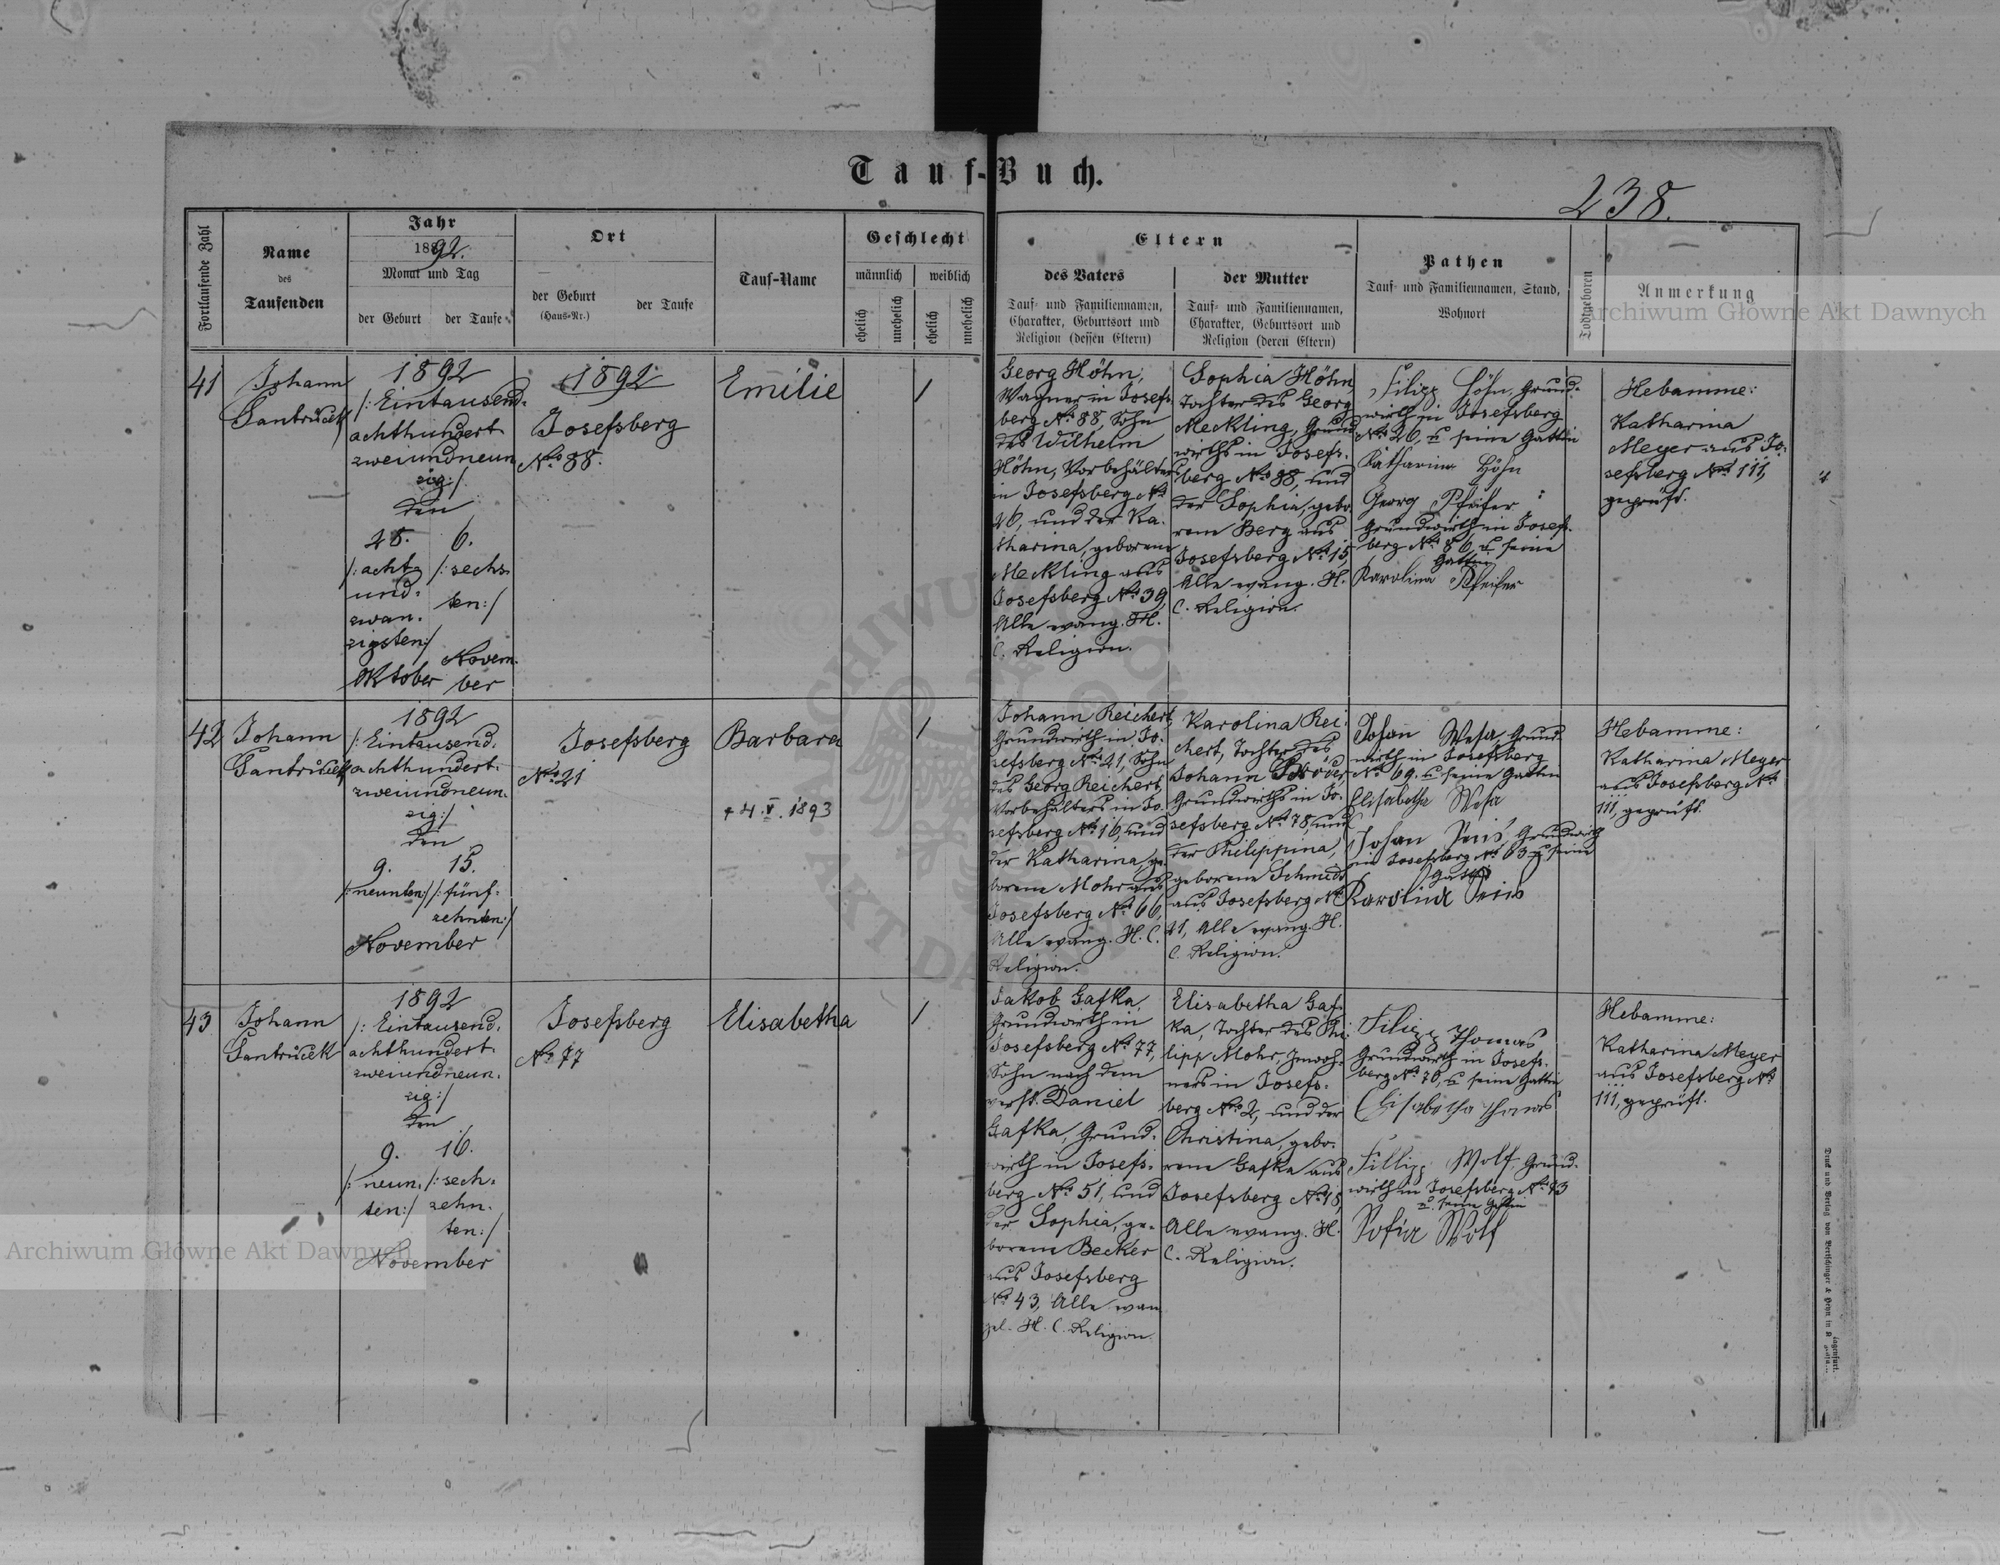 Tauf-Buch.
238.
Fortlaufende Zahl
Name
des
Taufenden
Jahr
1892.
Monat und Tag
der Geburt
der Taufe
Ort
der Geburt
(Haus-Nr.)
der Taufe
Tauf-Name
Geschlecht
männlich
weiblich
ehelich
unehelich
ehelich
unehelich
Eltern
des Vaters
Tauf- und Familiennamen,
Charakter, Geburtsort und
Religion (dessen Eltern)
der Mutter
Tauf- und Familiennamen,
Charakter, Geburtsort und
Religion (deren Eltern)
Pathen
Tauf- und Familiennamen, Stand,
Wohnort
Todtgeboren
Anmerkung
Archiwum Główne Akt Dawnych
41
Johann
1892
/: Eintausend-
achthundert-
zweiundneun
zig:/
den
28.
/: acht
und-
zwan-
zigsten:/
Oktober
6.
/: sechs-
ten:/
Novem-
ber
1892
Josefsberg
No 88.
Emilie
1
Georg Höhn,
Wagner in Josefs-
berg No 88, Sohn
des Wilhelm
Höhn, Vorbehälters
in Josefsberg No
26, und der Ka-
tharina, geborene
Meckling aus
Josefsberg No 39,
Alle evang. H.
C. Religion.
Sophia Höhn
Tochter des Georg
Meckling, Grund-
wirths in Josefs-
berg No 88, und
der Sophia, gebo-
rene Berg aus
Josefsberg No 15,
Alle evang. H.
C. Religion.
Filipp Höhn, Grund-
wirth in Josefsberg
No 26, u seine Gattin
Katharina Höhn
Georg Pfeifer
Grundwirth in Josefs-
berg No 86, u seine
Gattin
Karolina Pfeifer
Hebamme:
Katharina
Meyer aus Jo-
sefsberg No 111,
geprüft.
42
Johann
1892
/: Eintausend-
achthundert-
zweiundneun-
zig:/
den
9.
/: neunten:/
15.
/: fünf-
zehnten:/
November
Josefsberg
No 21
Barbara
+ 4. V. 1893
1
Johann Reichert,
Grundwirth in Jo-
sefsberg No 21, Sohn
des Georg Reichert,
Vorbehälters in Jo-
sefsberg No 16, und
der Katharina, ge-
borene Mohr aus
Josefsberg No 66,
Alle evang. H. C.
Religion.
Karolina Rei-
chert, Tochter des
Johann
Grundwirths in Jo-
sefsberg No 78, und
der Philippina,
geborene Schmidt
aus Josefsberg No
21, Alle evang. H.
C. Religion.
Johan Wesa, Grund-
wirth in Josefsberg
No 69. u seine Gattin
Elisabetha Wesa
Johan Grundwirth
in Josefsberg No 63 u seine
Gattin
Karolina
Hebamme:
Katharina Meyer
aus Josefsberg No
111, geprüft.
43
Johann
1892
/: Eintausend-
achthundert-
zweiundneun-
zig:/
den
9.
/: neun-
ten:/
16.
/: sech-
zehn-
ten:/
November
Josefsberg
No 77
Elisabetha
1
Jakob Gafka,
Grundwirth in
Josefsberg No 77,
Sohn nach dem
verst. Daniel
Gafka, Grund-
wirth in Josefs-
berg No 51, und
der Sophia, ge-
borene Becker
aus Josefsberg
No 43, Alle evan
gel. H. C. Religion.
Elisabetha Gaf-
ka, Tochter des Phi-
lipp Mohr, Inwoh-
ners in Josefs-
berg No 2, und der
Christina, gebo-
rene Gafka aus
Josefsberg No 18,
Alle evang. H.
C. Religion.
Filipp Thomas
Grundwirth in Josefs-
berg No 70, u seine Gattin
Elisabetha Thomas
Fillipp Wolf, Grund-
wirth in Josefsberg No 43
u. seine Gattin
Sofia Wolf
Hebamme:
Katharina Meyer
aus Josefsberg No
111, geprüft.
Archiwum Główne Akt Dawnych